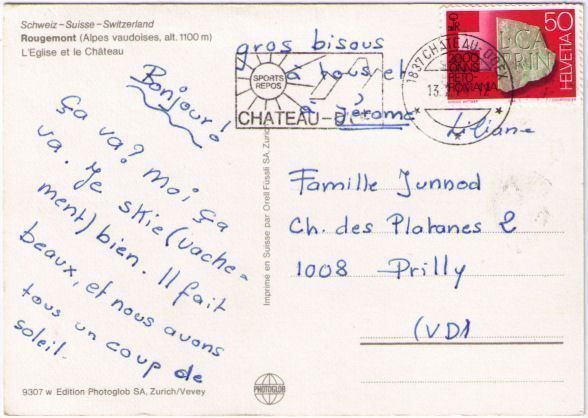 Schweiz – Suisse – Switzerland
Rougemont (Alpes vaudoises, alt. 1100 m)
L'Eglise et le Château
Bonjour!
Ça va? Moi ça
va. Je skie (vache-
ment) bien. Il fait
beaux, et nous avons
tous un coup de
soleil.
gros bisous
à tous et
à Jérôme
Liliane
SPORTS
REPOS
CHATEAU-D
1837 CHATEAU-D'OEX
13.
50
HELVETIA
2000
ONNS
RETO-
ROMANIA
Famille Junnod
Ch. des Platanes 2
1008 Prilly
(VD)
Imprimé en Suisse par Orell Füssli SA, Zurich
PHOTOGLOB
9307 w Edition Photoglob SA, Zurich/Vevey